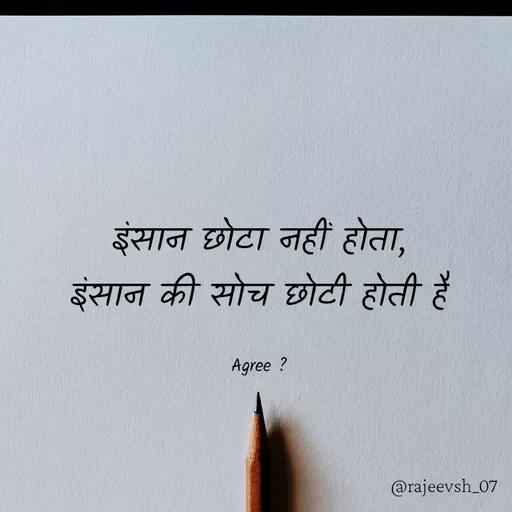 इंसान छोटा नहीं होता,
इंसान की सोच छोटी होती है
Agree ?
@rajeevsh_07